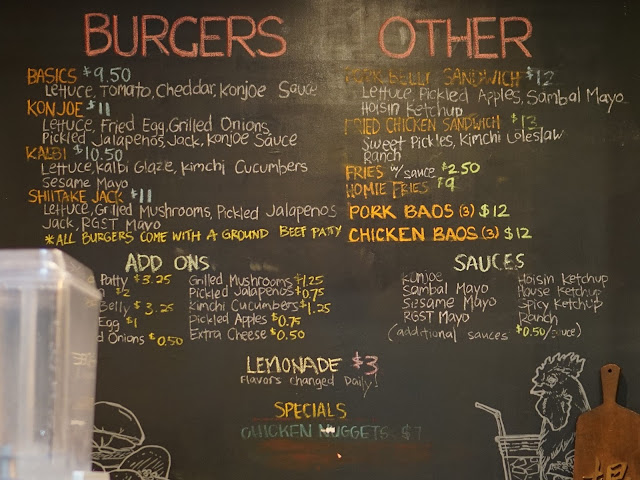 BURGERS
BASICS $9.50
Lettuce, Tomato, Cheddar, Konjoe Sauce
KONJOE $11
Lettuce, Fried Egg, Grilled Onions,
Pickled Jalapenos, Jack, Konjoe Sauce
KALBI $10.50
Lettuce, Kalbi Glaze, Kimchi Cucumbers
Sesame Mayo
SHIITAKE JACK $11
Lettuce, Grilled Mushrooms, Pickled Jalapenos
Jack, RGST Mayo
*ALL BURGERS COME WITH A GROUND BEEF PATTY
OTHER
PORK BELLY SANDWICH $12
Lettuce, Pickled Apples, Sambal Mayo
Hoisin Ketchup
FRIED CHICKEN SANDWICH $13
Sweet Pickles, Kimchi Coleslaw
Ranch
FRIES w/ sauce $2.50
HOMIE FRIES $9
PORK BAOS (3) $12
CHICKEN BAOS (3) $12
ADD ONS
Patty $3.25
Belly $3.25
Egg $1
Onions $0.50
Grilled Mushrooms $1.25
Pickled Jalapenos $0.75
Kimchi Cucumbers $1.25
Pickled Apples $0.75
Extra Cheese $0.50
SAUCES
Konjoe
Sambal Mayo
Sesame Mayo
RGST Mayo
Hoisin Ketchup
House Ketchup
Spicy Ketchup
Ranch
(additional sauces $0.50/sauce)
LEMONADE $3
Flavors changed Daily!
SPECIALS
CHICKEN NUGGETS $7